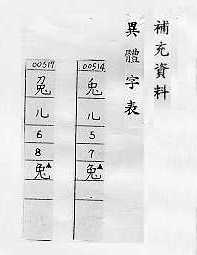 補充資料
異體字表
00514
儿
5
7
兔▲
00517
儿
6
8
兔▲